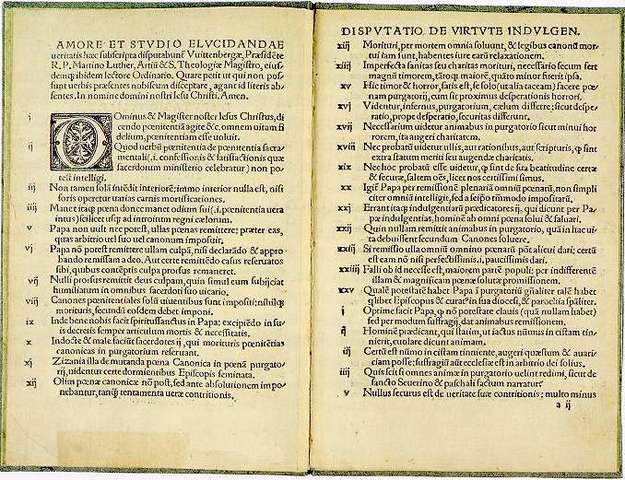 AMORE ET STVDIO ELVCIDANDAE
ueritatis hæc subscripta disputabunt̄ Vuittenbergæ, Præsidēte
R. P. Martino Luther, Artiū & S. Theologiæ Magistro, eius-
demq; ibidem lectore Ordinario. Quare petit ut qui non pos-
sunt uerbis præsentes nobiscum disceptare, agant id literis ab-
sentes. In nomine domini nostri Iesu Christi. Amen.
i DOminus & Magister noster Iesus Christus, di-
cendo pœnitentiā agite &c. omnem uitam fi-
delium, pœnitentiam esse uoluit.
ij Quod uerbū pœnitentia de pœnitentia sacra-
mentali (.i. confessionis & satisfactionis quæ
sacerdotum ministerio celebratur) non po-
test intelligi.
iij Non tamen solā intēdit interiorē: immo interior nulla est, nisi
foris operetur uarias carnis mortificationes.
iiij Manet itaq; pœna donec manet odium sui (.i. pœnitentia uera
intus) scilicet usq; ad introitum regni cælorum.
v Papa non uult nec potest, ullas pœnas remittere: præter eas,
quas arbitrio uel suo uel canonum imposuit.
vj Papa nō potest remittere ullam culpā, nisi declarādo & appro-
bando remissam a deo. Aut certe remittēdo casus reseruatos
sibi, quibus cōtēptis culpa prorsus remaneret.
vij Nulli prorsus remittit deus culpam, quin simul eum subijciat
humiliatum in omnibus sacerdoti suo uicario.
viij Canones pœnitentiales solū uiuentibus sunt impositi: nihilq;
morituris, secundū eosdem debet imponi.
ix Inde bene nobis facit spiritussanctus in Papa: excipiēdo in su-
is decretis semper articulum mortis & necessitatis.
x Indocte & male faciūt sacerdotes ij, qui morituris pœnitētias
canonicas in purgatorium reseruant.
xj Zizania illa de mutanda pœna Canonica in pœnā purgato-
rij, uidentur certe dormientibus Episcopis seminata.
xij Olim pœnæ canonicæ nō post, sed ante absolutionem impo-
nebantur, tanq̄ tentamenta ueræ contritionis.
DISPVTATIO DE VIRTVTE INDVLGEN.
xiij Morituri, per mortem omnia soluunt, & legibus canonū mor-
tui iam sunt, habentes iure earū relaxationem.
xiiij Imperfecta sanitas seu charitas morituri, necessario secum fert
magnū timorem, tātoq; maiorē, quāto minor fuerit ipsa.
xv Hic timor & horror, satis est, se solo (ut alia taceam) facere pœ-
nam purgatorij, cum sit proximus desperationis horrori.
xvj Videntur, infernus, purgatorium, cælum differre: sicut despe-
ratio, prope desperatio, securitas differunt.
xvij Necessarium uidetur animabus in purgatorio sicut minui hor-
rorem, ita augeri charitatem.
xviij Nec probatū uidetur ullis, aut rationibus, aut scripturis, q̄ sint
extra statum meriti seu augendæ charitatis.
xix Nec hoc probatū esse uidetur, q̄ sint de sua beatitudine certæ
& securæ, saltem oēs, licet nos certissimi simus.
xx Igit̄ Papa per remissionē plenariā omniū pœnarū, non simpli
citer omniū intelligit, sed a seipso tm̄modo impositarū.
xxj Errant itaq; indulgentiarū prædicatores ij, qui dicunt per Pa-
pæ indulgentias, hominē ab omni pœna solui & saluari.
xxij Quin nullam remittit animabus in purgatorio, quā in hac ui-
ta debuissent secundum Canones soluere.
xxiij Si remissio ulla omniū omnino pœnarū pōt alicui dari; certū
est eam nō nisi perfectissimis .i. paucissimis dari.
xxiiij Falli ob id necesse est, maiorem partē populi: per indifferentē
illam & magnificam pœnæ solutæ promissionem.
xxv Qualē potestatē habet Papa ī purgatoriū gn̄aliter talē habet
q̄libet Episcopus & curat⁹ in sua diocesi, & parochia spāliter.
i Optime facit Papa, q̄ nō potestate clauis (quā nullam habet)
sed per modum suffragij, dat animabus remissionem.
ij Hominē prædicant, qui statim, ut iactus nūmus in cistam tin-
nierit, euolare dicunt animam.
iij Certū est nūmo in cistam tinniente, augeri quæstum & auari-
ciam posse: suffragiū aūt ecclesiæ est in arbitrio dei solius.
iiij Quis scit si omnes animæ in purgatorio uelint redimi, sicut de
sancto Seuerino & paschali factum narratur.
v Nullus securus est de ueritate suæ contritionis; multo minus
a ij